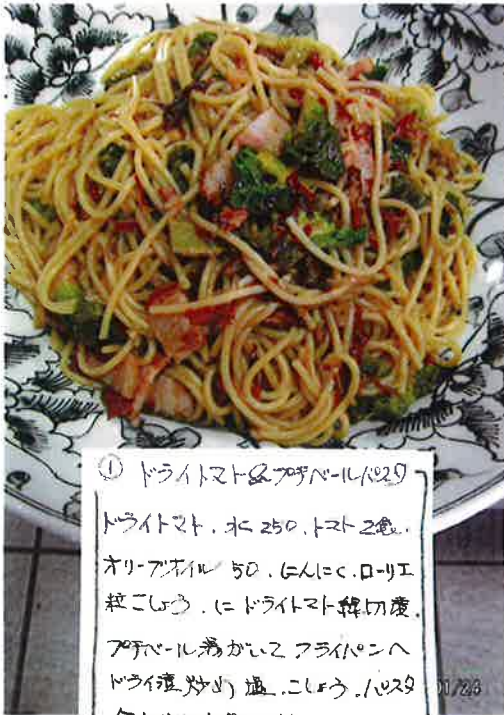 ① ドライトマト&プチベールパスタ
ドライトマト、水250、トマト2ヶ
オリーブオイル 50、にんにく、ローリエ
粒こしょう、にドライトマト 漬
プチベール湯がいてフライパンへ
ドライ漬 炒め 塩、こしょう、パスタ
01/24